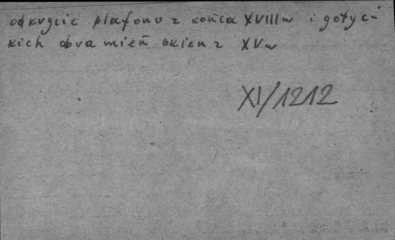 odkrycie plafonu z końca XVIII w i gotyc-
kich obramień okien z XV w
XI/1212